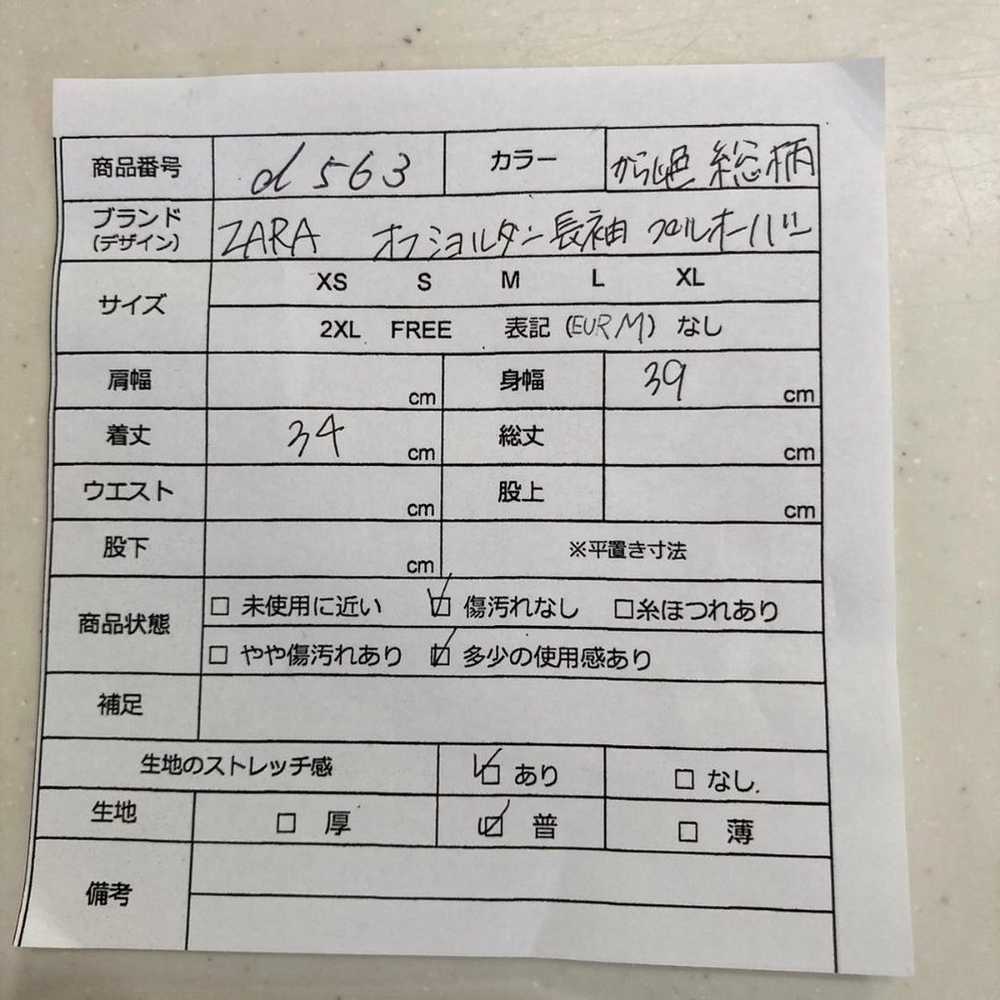 商品番号 d563 カラー からし色 総柄
ブランド ZARA オフショルダン長袖 プルオーバー
(デザイン)
サイズ XS S M L XL
2XL FREE 表記(EUR M) なし
肩幅 cm 身幅 39 cm
着丈 34 cm 総丈 cm
ウエスト cm 股上 cm
股下 cm ※平置き寸法
商品状態 □ 未使用に近い ☑ 傷汚れなし □糸ほつれあり
□ やや傷汚れあり ☑ 多少の使用感あり
補足
生地のストレッチ感 ☑ あり □ なし.
生地 □ 厚 ☑ 普 □ 薄
備考